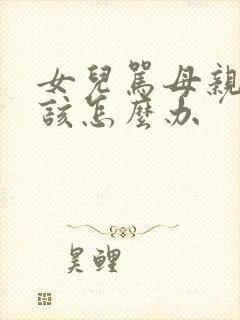 女兒罵母親
該怎麼办
昊鲤